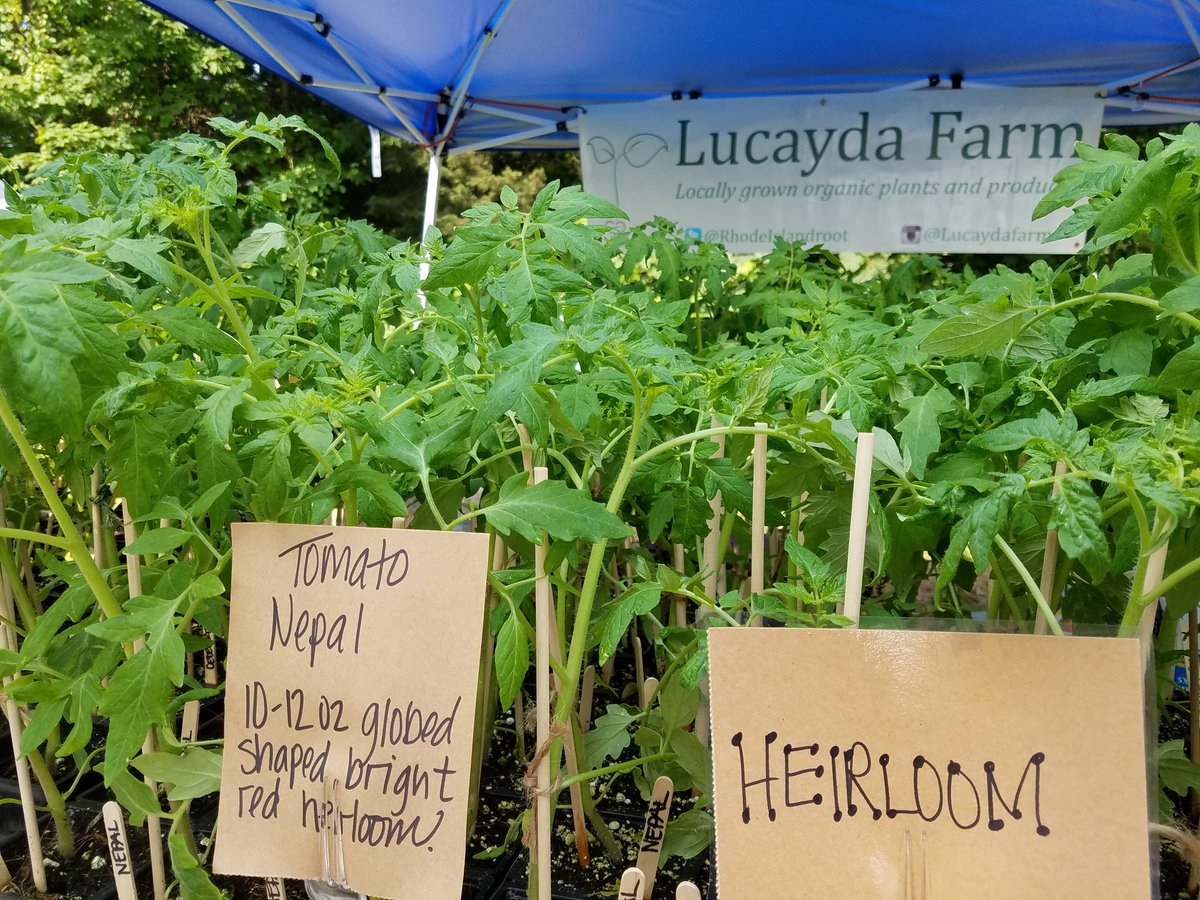 Lucayda Farm
Locally grown organic plants and produc
@RhodeIslandroot
@Lucaydafarm
Tomato
Nepal
10-12 oz globed
shaped bright
red heirloom.
HEIRLOOM
NEPAL
NEPAL